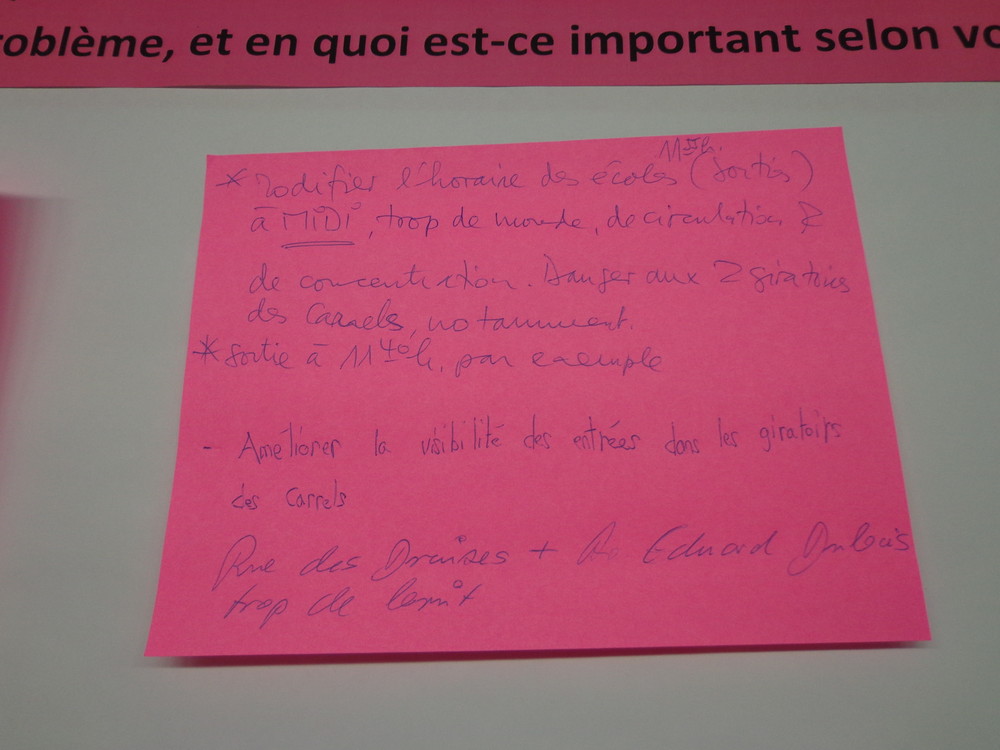 roblème, et en quoi est-ce important selon vo
* modifier l'horaire des écoles (sorties)
à MIDI, trop de monde, de circulation &
de concentration. Danger aux 2 giratoires
des Carrels, notamment.
* sortie à 11 40 h, par exemple
- Améliorer la visibilité des entrées dans les giratoirs
des Carrels
Rue des Draizes + R. Edouard Dubois
trop de bruit